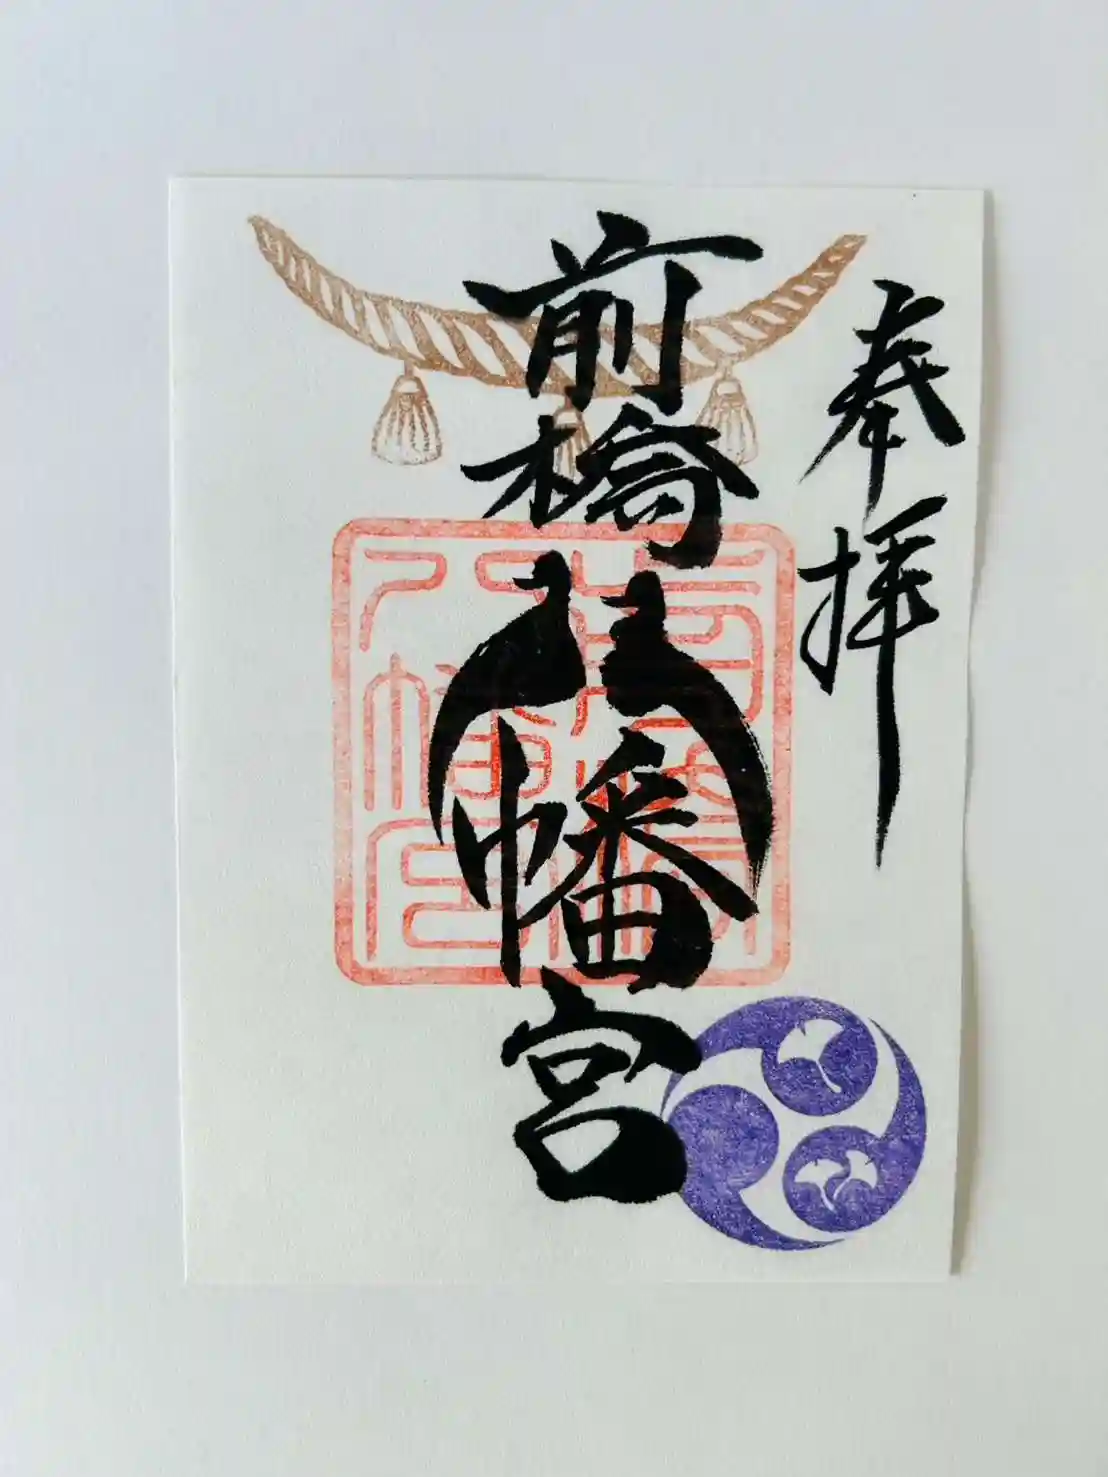 奉拝
前橋八幡宮
前橋八幡宮